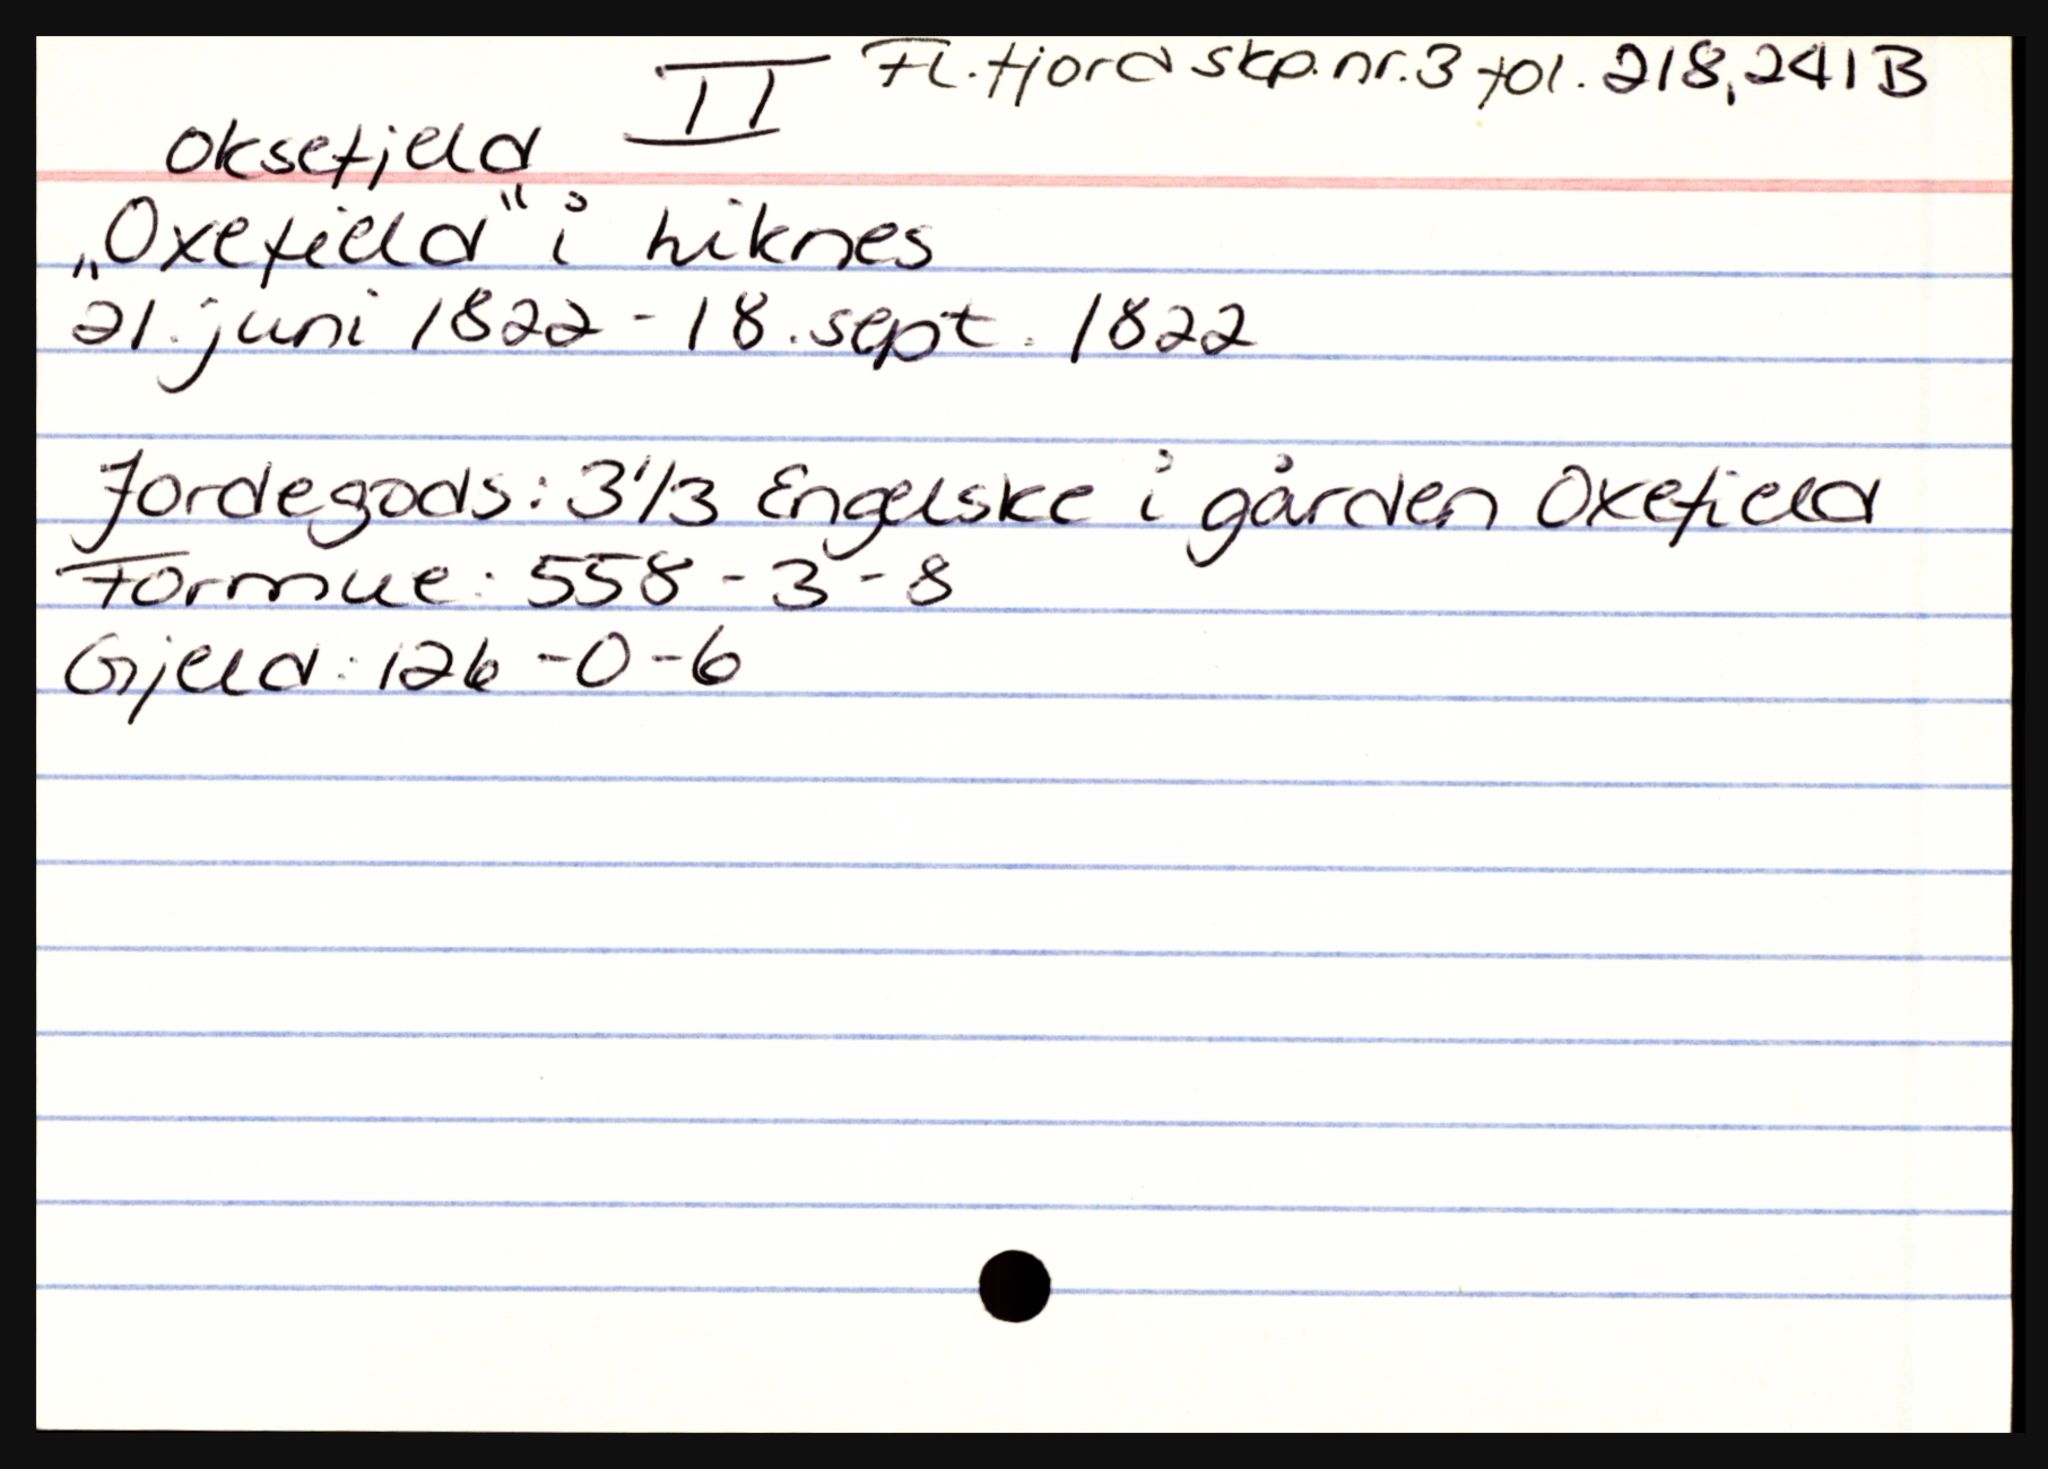 II Fl.fjord skp.nr.3 fol. 218,241B
Oksefjeld
„Oxefield“ i Liknes
21. juni 1822 - 18. sept. 1822
Jordegods: 3 1/3 Engelske i gården Oxefield
Formue: 558 - 3 - 8
Gjeld: 126 - 0 - 6